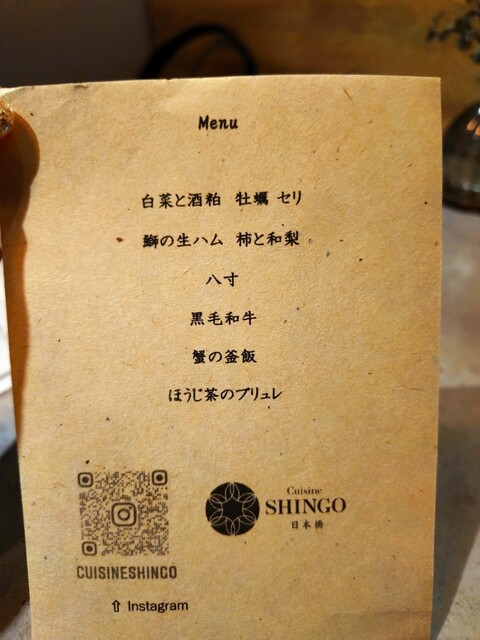 Menu
白菜と酒粕 牡蠣 セリ
鰤の生ハム 柿と和梨
八寸
黒毛和牛
蟹の釜飯
ほうじ茶のブリュレ
Cuisine
SHINGO
日本橋
CUISINESHINGO
⇧ Instagram